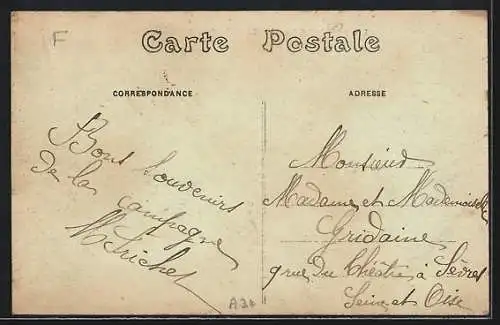 F
Carte Postale
CORRESPONDANCE
ADRESSE
Bons Souvenirs
de la Campagne
Monsieur
Madame et Mademoiselle
Gridaine
9 rue Du Théâtre à Sèvres
Seine et Oise